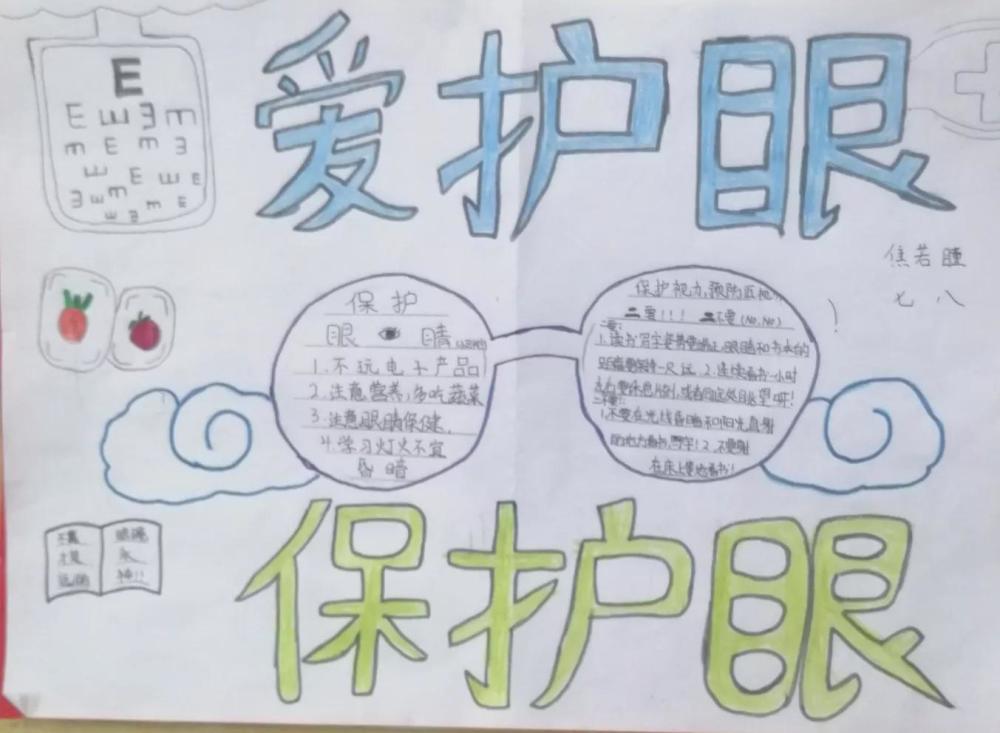 爱护眼
E
E Ш Ǝ m
m E m Ǝ
Ш E Ш E
Ǝ Ш m m E
Ш Ǝ
焦若瞳
七 八
保护
眼 睛
1.不玩电子产品
2.注意营养,多吃蔬菜
3.注意眼睛保健.
4.学习灯火不宜
昏暗
保护视力,预防近视
二要!!! 不要(No,No)
一要:
1.读书写字姿势要端正,眼睛和书本的
距离要保持一尺远.2.连续看书一小时
左右要休息片刻,或者向远处眺望呀!
二不要:
1.不要在光线昏暗和阳光直射
的地方看书,写字!2.不要躺
在床上
看书!
保护眼